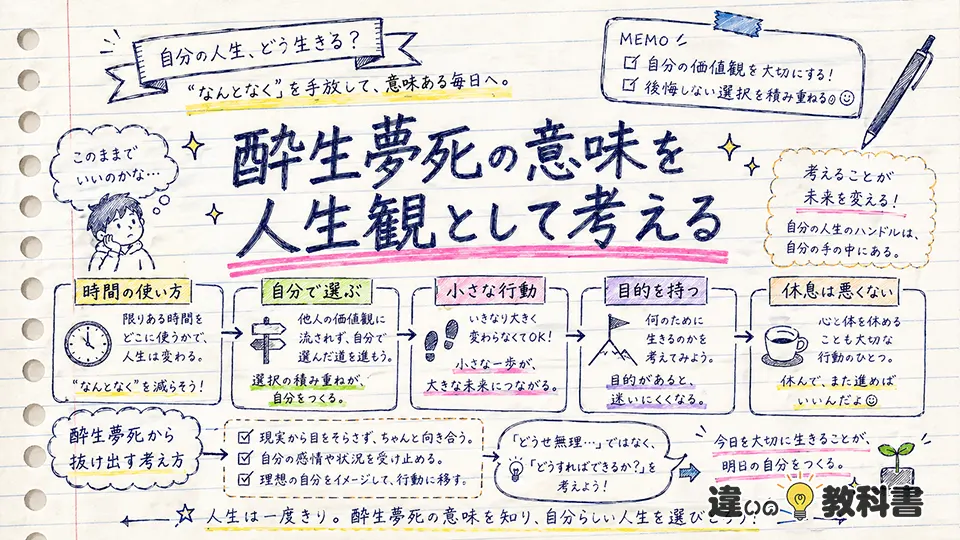 自分の人生、どう生きる？
"なんとなく"を手放して、意味ある毎日へ。
MEMO
自分の価値観を大切にする！
後悔しない選択を積み重ねる
このままで
いいのかな…
酔生夢死の意味を
人生観として考える
考えることが
未来を変える！
自分の人生のハンドルは、
自分の手の中にある。
時間の使い方
限りある時間を
どこに使うかで、
人生は変わる。
"なんとなく"を減らそう！
自分で選ぶ
他人の価値観に
流されず、自分で
選んだ道を進もう。
選択の積み重ねが、
自分をつくる。
小さな行動
いきなり大きく
変わらなくてOK！
小さな一歩が、
大きな未来につながる。
目的を持つ
何のために
生きるのかを
考えてみよう。
目的があると、
迷いにくくなる。
休息は悪くない
心と体を休める
ことも大切な
行動のひとつ。
休んで、また進めば
いいんだよ
酔生夢死から
抜け出す考え方
現実から目をそらさず、ちゃんと向き合う。
自分の感情や状況を受け止める。
理想の自分をイメージして、行動に移す。
「どうせ無理…」ではなく、
「どうすればできるか？」を
考えよう！
今日を大切に生きることが、
明日の自分をつくる。
人生は一度きり。酔生夢死の意味を知り、自分らしい人生を選び
違いの教科書